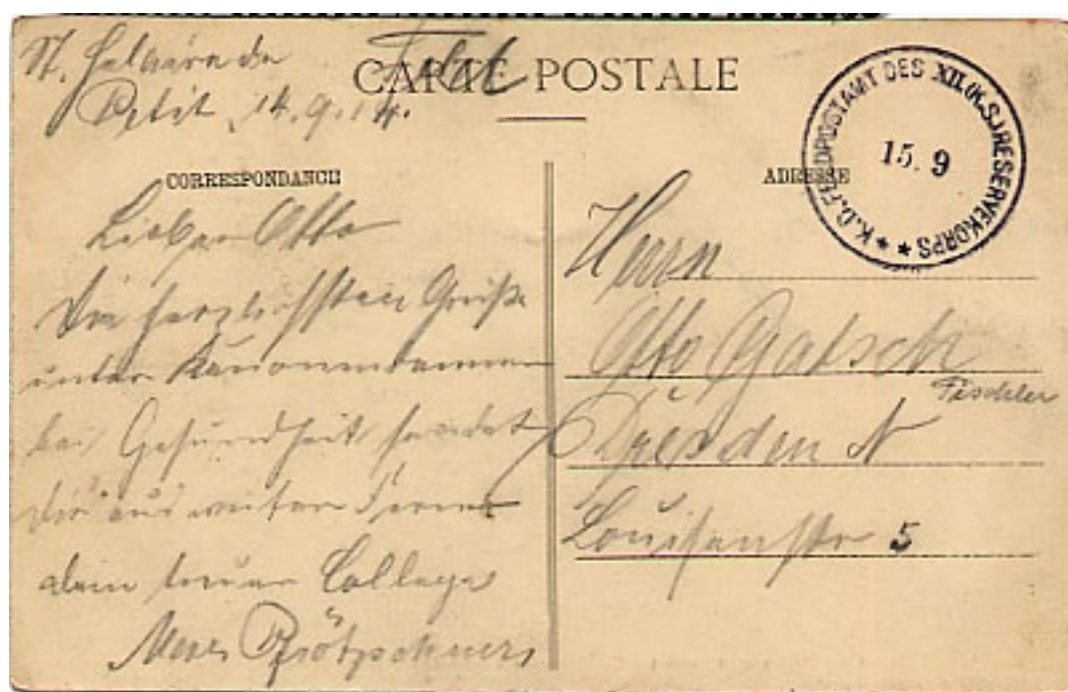 St.
Petit, 14.9.14.
CARTE POSTALE
K.D.FELDPOSTAMT DES XII.(K.S.)RESERVEKORPS
15. 9
CORRESPONDANCE
Lieber Otto
Die herzlichsten Grüße
unter Kanonendonner
bei Gesundheit sendet
Dir aus weiter Ferne
dein treuer College
ADRESSE
Herrn
Otto Gatsch
Tischler
Dresden N
Louisenstr 5